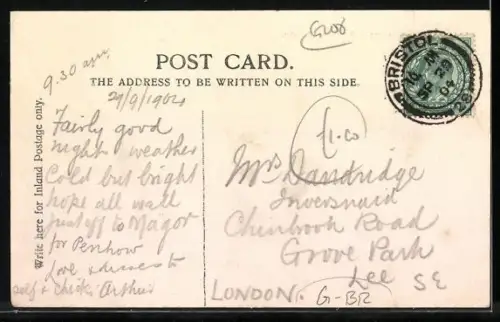 G208
POST CARD.
THE ADDRESS TO BE WRITTEN ON THIS SIDE.
Write here for Inland Postage only.
9.30 am
29/9/1904
Fairly good
night weather
Cold but bright
hope all well
just off to Magor
for Penhow
Love & kisses to
self & chicks Arthur
BRISTOL
SP 29
04
28
£1.00
Mrs Dandridge
Inversnaid
Chinbrook Road
Grove Park
Lee SE
LONDON.
G-BR